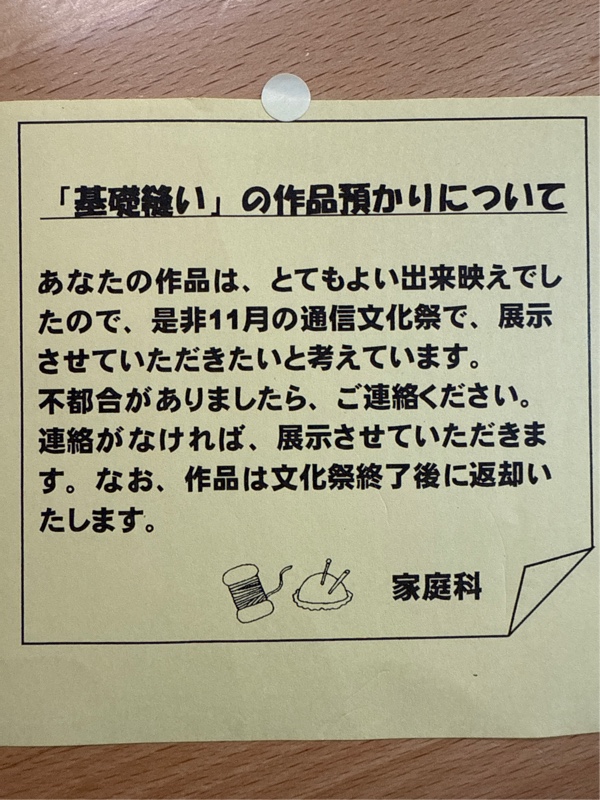 「基礎縫い」の作品預かりについて
あなたの作品は、とてもよい出来映えでし
たので、是非11月の通信文化祭で、展示
させていただきたいと考えています。
不都合がありましたら、ご連絡ください。
連絡がなければ、展示させていただきま
す。なお、作品は文化祭終了後に返却い
たします。
家庭科